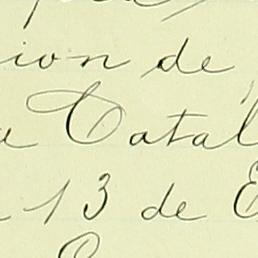 ion de
a Catal
13 de E